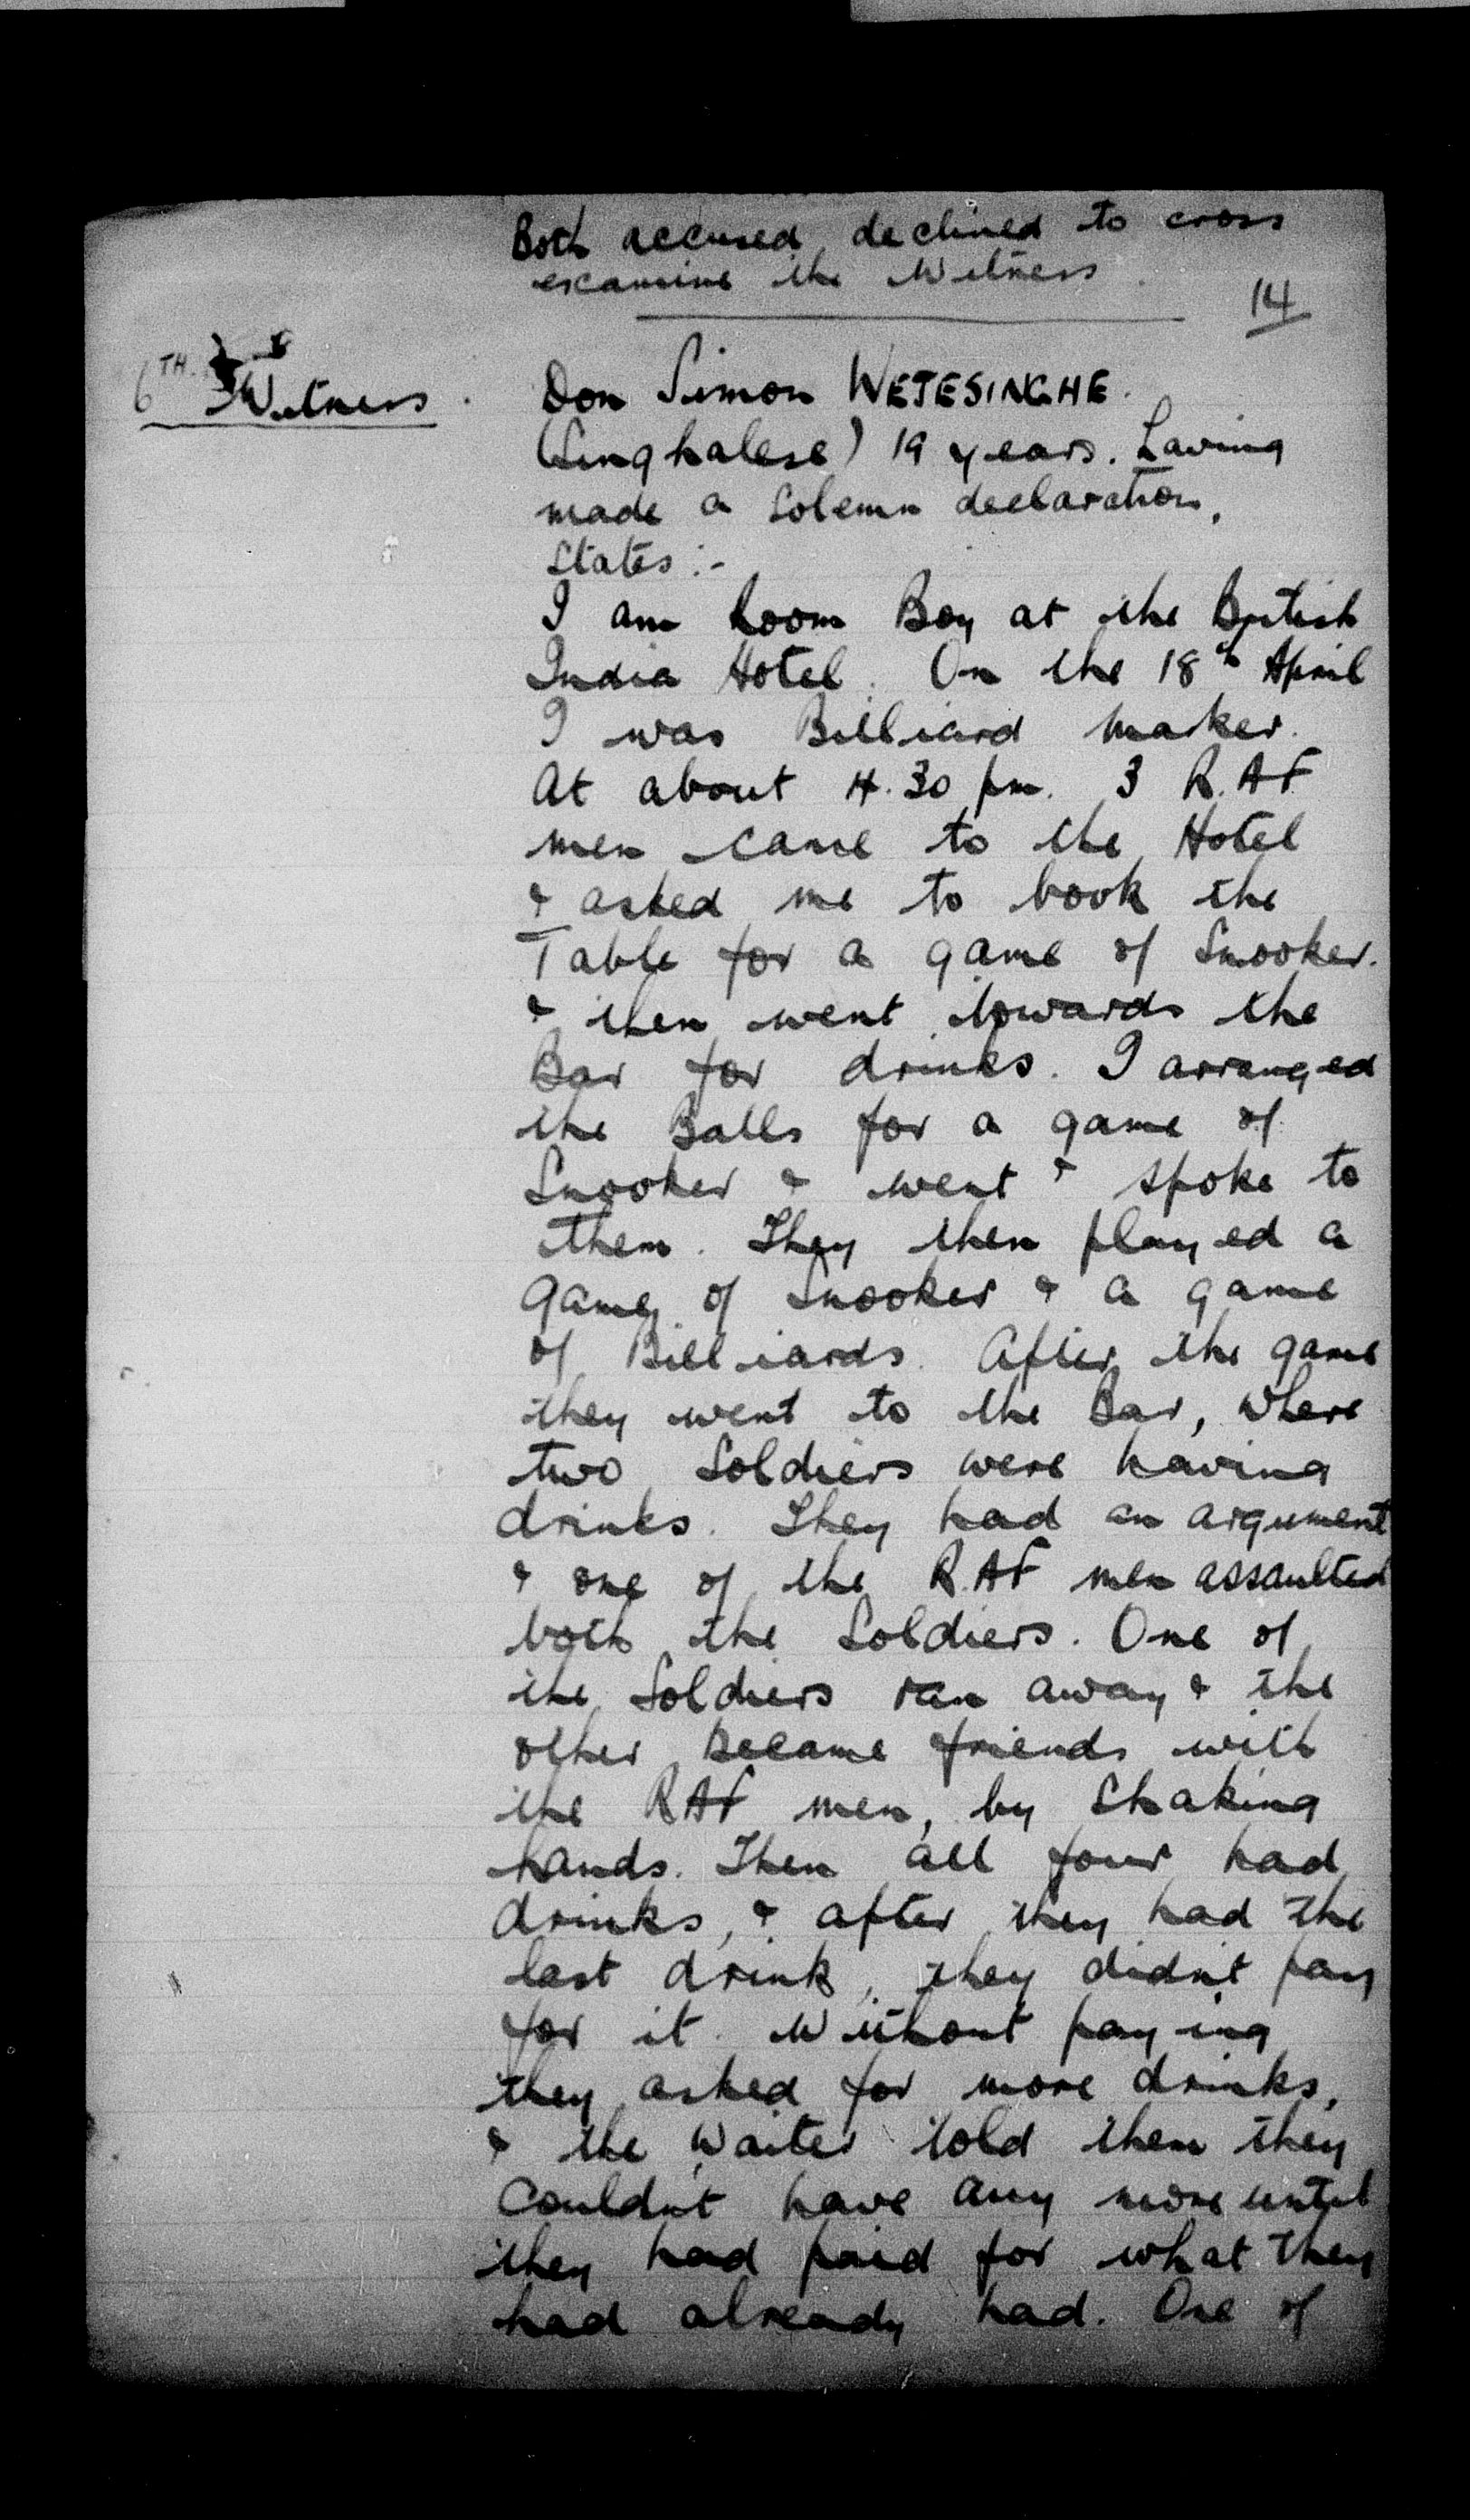 Both accused declined to cross
examine the Witness.
14
6TH Witness.
Don Simon WEJESINGHE.
(Singhalese) 19 years. Having
made a Solemn declaration,
States :-
I am Room Boy at the British
India Hotel. On the 18th April
I was Billiard marker.
At about 4.30 pm. 3 R.A.F
men came to the Hotel
& asked me to book the
Table for a game of Snooker.
& then went towards the
Bar for drinks. I arranged
the Balls for a game of
Snooker & went & spoke to
them. They then played a
game of Snooker & a game
of Billiards. After the game
they went to the Bar, where
two Soldiers were having
drinks. They had an argument
& one of the R.AF men assaulted
both the Soldiers. One of
the Soldiers ran away & the
other became friends with
the RAF men, by Shaking
hands. Then all four had
drinks, & after they had the
last drink, they didn't pay
for it. Without paying
they asked for more drinks,
& the Waiter told them they
Couldn't have any more until
they had paid for what they
had already had. One of